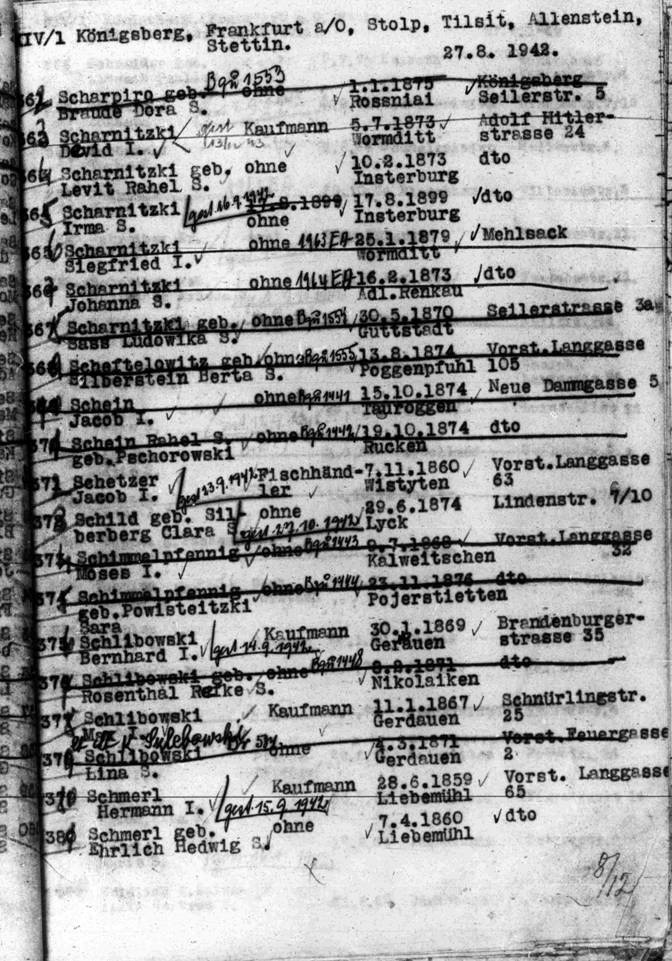 XIV/1 Königsberg, Frankfurt a/O, Stolp, Tilsit, Allenstein,
Stettin. 27.8. 1942.
Scharpiro geb. Bqu 1553 ohne 1.1.1875 Königsberg
Braude Dora S. Rossniai Seilerstr. 5
Scharnitzki Kaufmann 5.7.1873 Adolf Hitler-
David I. Wormditt strasse 24
Scharnitzki geb. ohne 10.2.1873 dto
Levit Rahel S. Insterburg
Scharnitzki gest. 16.9.1942 17.8.1899 17.8.1899 dto
Irma S. ohne Insterburg
Scharnitzki ohne 1963 EA 25.1.1879 Mehlsack
Siegfried I. Wormditt
Scharnitzki ohne 1964 EA 16.2.1873 dto
Johanna S. Adl.Renkau
Scharnitzki geb. ohne Bqu 1554 30.5.1870 Seilerstrasse 3a
Sass Ludowika S. Guttstadt
Scheftelowitz geb. ohne Bqu 1555 13.8.1874 Vorst.Langgasse
Silberstein Berta S. Poggenpfuhl 105
Schein ohne Bqu 1441 15.10.1874 Neue Dammgasse 5
Jacob I. Tauroggen
Schein Rahel S. ohne Bqu 1442 19.10.1874 dto
geb.Pschorowski Rucken
371 Schetzer gest 23.9.1942 Fischhänd- 7.11.1860 Vorst.Langgasse
Jacob I. ler Wistyten 63
Schild geb. Sil- ohne 29.6.1874 Lindenstr. 7/10
berberg Clara S gest. 27.10.1942 Lyck
Schimmelpfennig ohne Bqu 1443 9.7.1868 Vorst.Langgasse
Moses I. Kalweitschen 32
Schimmelpfennig ohne Bqu 1444 23.11.1876 dto
geb.Powisteitzki Pojerstietten
Sara
Schlibowski Kaufmann 30.1.1869 Brandenburger-
Bernhard I. gest 14.9.1942 Gerdauen strasse 35
Schlibowski geb. ohne Bqu 1448 dto
Rosenthal Refke S. Nikolaiken
Schlibowski Kaufmann 11.1.1867 Schnürlingstr.
Gerdauen 25
Schlibowski ohne 4.3.1871 Vorst.Feuergasse
Lina S. Gerdauen 2
Schmerl Kaufmann 28.6.1859 Vorst. Langgasse
Hermann I. gest 15.9.1942 Liebemühl 65
Schmerl geb. ohne 7.4.1860 dto
Ehrlich Hedwig S. Liebemühl
8/12